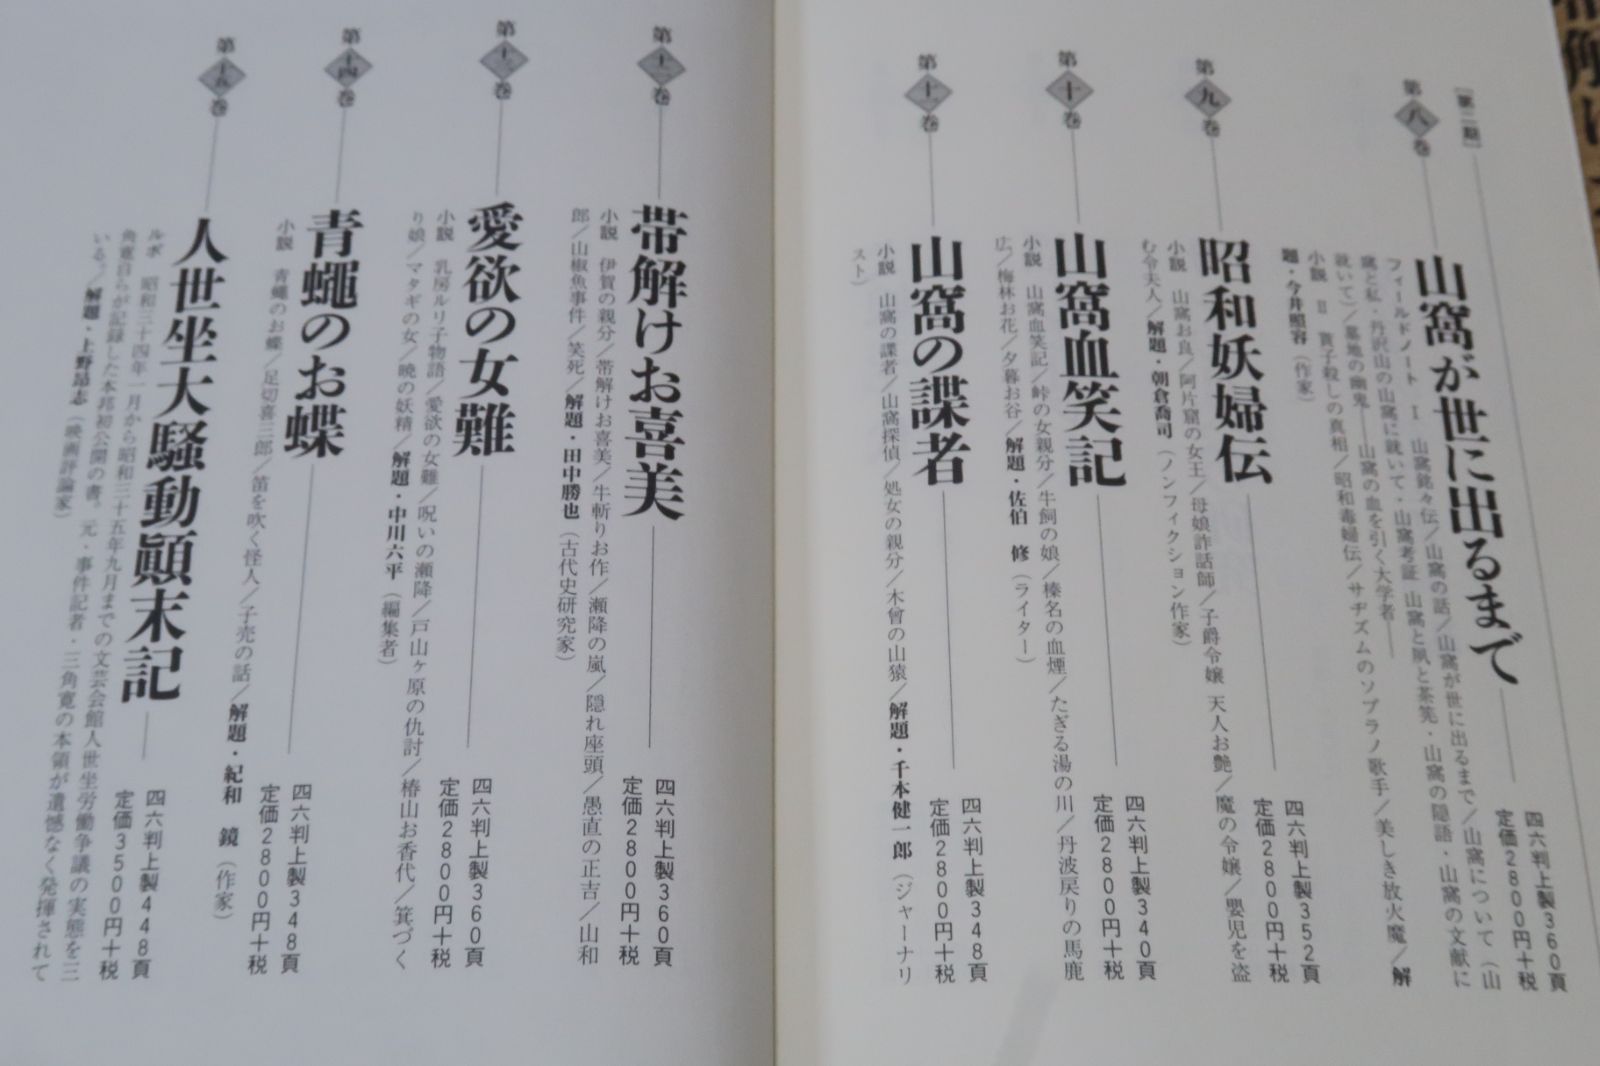 [第二期]
第八巻
山窩が世に出るまで
四六判上製360頁
定価2800円+税
フィールドノート Ⅰ 山窩銘々伝／山窩の話／山窩が世に出るまで／山窩について（山
窩と私・丹沢山の山窩に就いて・山窩考証 山窩と凧と茶筅・山窩の隠語・山窩の文献に
就いて）／墓地の幽鬼──山窩の血を引く大学者──
小説 Ⅱ 貰子殺しの真相／昭和毒婦伝／サヂズムのソプラノ歌手／美しき放火魔／解
題・今井照容（作家）
第九巻
昭和妖婦伝
四六判上製352頁
定価2800円+税
小説 山窩お良／阿片窟の女王／母娘詐話師／子爵令嬢 天人お艶／魔の令嬢／嬰児を盗
む令夫人／解題・朝倉喬司（ノンフィクション作家）
第十巻
山窩血笑記
四六判上製340頁
定価2800円+税
小説 山窩血笑記／峠の女親分／牛飼の娘／榛名の血煙／たぎる湯の川／丹波戻りの馬鹿
広／梅林お花／夕暮お谷／解題・佐伯 修（ライター）
第十一巻
山窩の諜者
四六判上製348頁
定価2800円+税
小説 山窩の諜者／山窩探偵／処女の親分／木曾の山猿／解題・千本健一郎（ジャーナリ
スト）
第十二巻
帯解けお喜美
四六判上製360頁
定価2800円+税
小説 伊賀の親分／帯解けお喜美／牛斬りお作／瀬降の嵐／隠れ座頭／愚直の正吉／山和
郎／山椒魚事件／笑死／解題・田中勝也（古代史研究家）
第十三巻
愛欲の女難
四六判上製360頁
定価2800円+税
小説 乳房ルリ子物語／愛欲の女難／呪いの瀬降／戸山ヶ原の仇討／椿山お香代／箕づく
り娘／マタギの女／暁の妖精／解題・中川六平（編集者）
第十四巻
青蠅のお蝶
四六判上製348頁
定価2800円+税
小説 青蠅のお蝶／足切喜三郎／笛を吹く怪人／子売の話／解題・紀和 鏡（作家）
第十五巻
人世坐大騒動顚末記
四六判上製448頁
定価3500円+税
ルポ 昭和三十四年一月から昭和三十五年九月までの文芸会館人世坐労働争議の実態を三
角寛自らが記録した本邦初公開の書。元・事件記者・三角寛の本領が遺憾なく発揮されて
いる。／解題・上野昻志（映画評論家）